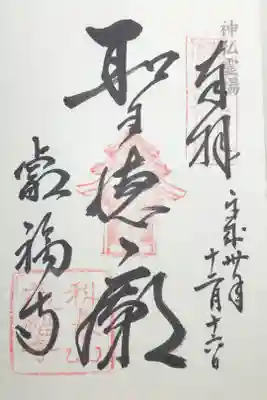 神仏霊場
奉拝
平成卅年
十二月十六日
聖徳廟
叡福寺